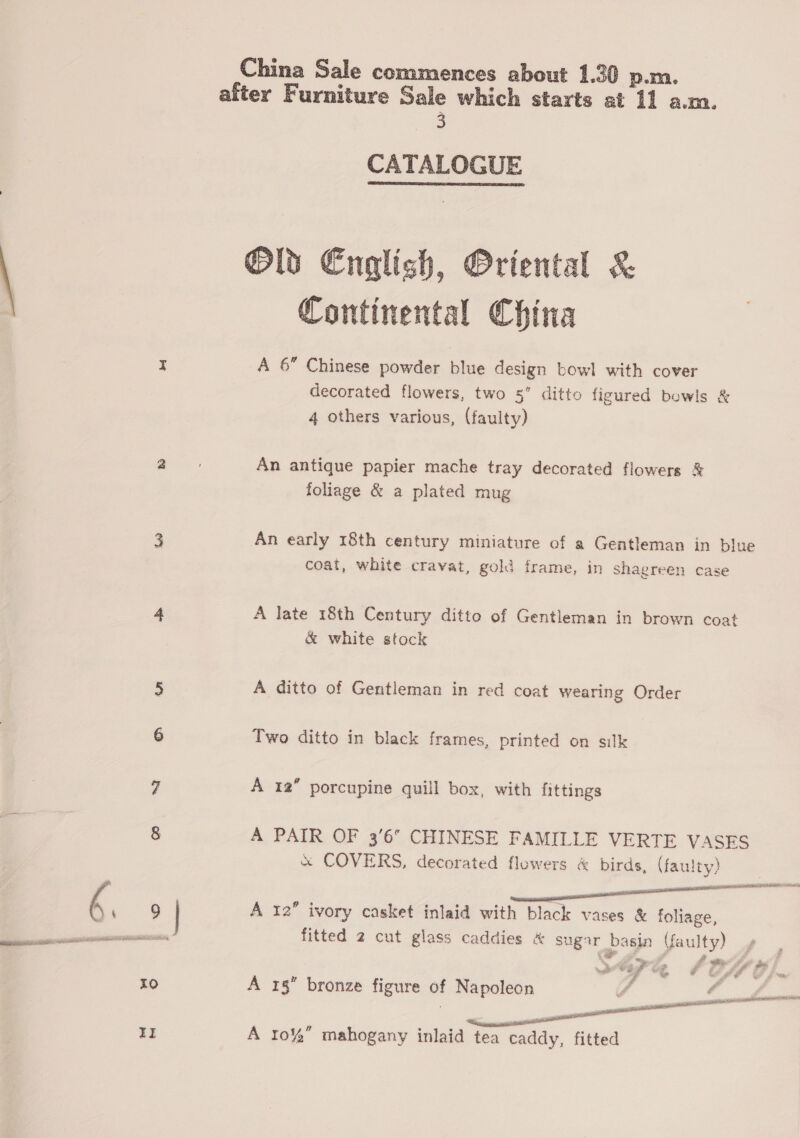 China Sale commences about 1.30 p.m.
after Furniture Sale which starts at 11 a.m.
3
CATALOGUE
Old English, Oriental &
Continental China
1 A 6″ Chinese powder blue design bowl with cover
decorated flowers, two 5″ ditto figured bowls &
4 others various, (faulty)
2 An antique papier mache tray decorated flowers &
foliage & a plated mug
3 An early 18th century miniature of a Gentleman in blue
coat, white cravat, gold frame, in shagreen case
4 A late 18th Century ditto of Gentleman in brown coat
& white stock
5 A ditto of Gentleman in red coat wearing Order
6 Two ditto in black frames, printed on silk
7 A 12″ porcupine quill box, with fittings
8 A PAIR OF 3′6″ CHINESE FAMILLE VERTE VASES
& COVERS, decorated flowers & birds, (faulty)
6. 9 A 12″ ivory casket inlaid with black vases & foliage,
fitted 2 cut glass caddies & sugar basin (faulty)
10 A 15″ bronze figure of Napoleon
11 A 10½″ mahogany inlaid tea caddy, fitted